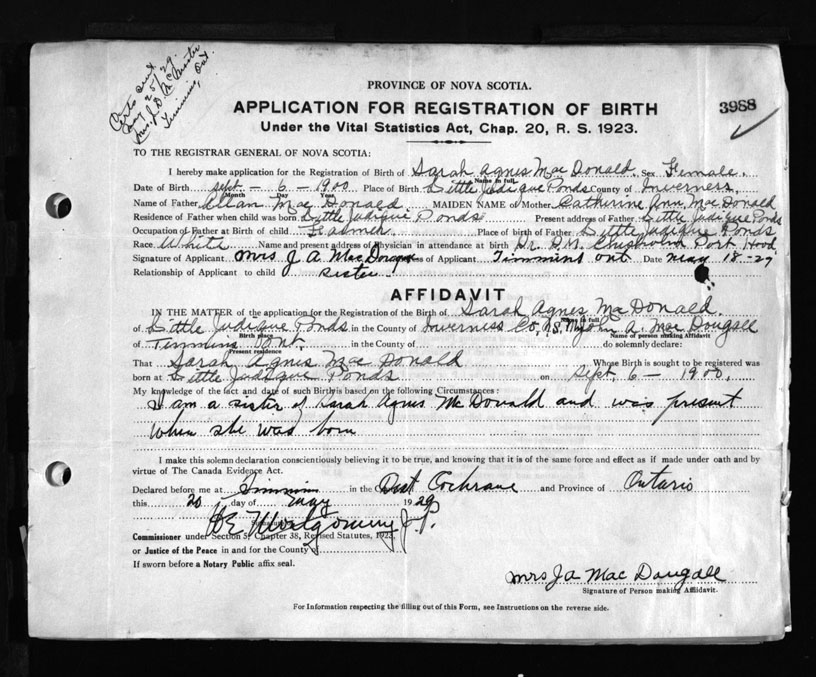 Certs sent
May 25/29
Mrs. J. D. A.
Timmins, Ont
PROVINCE OF NOVA SCOTIA.
APPLICATION FOR REGISTRATION OF BIRTH
3988
Under the Vital Statistics Act, Chap. 20, R. S. 1923.
TO THE REGISTRAR GENERAL OF NOVA SCOTIA:
I hereby make application for the Registration of Birth of Sarah Agnes Mac Donald. Sex Female.
Name in full
Date of Birth Sept - 6 - 1900 Place of Birth Little Judique Ponds County of Inverness,
Month Day Year
Name of Father Allan Mac Donald. MAIDEN NAME of Mother Catherine Ann Mac Donald
Residence of Father when child was born Little Judique Ponds Present address of Father Little Judique Ponds
Occupation of Father at Birth of child Farmer. Place of birth of Father Little Judique Ponds
Race White Name and present address of Physician in attendance at birth Dr. D.M. Chisholm Port Hood
Signature of Applicant Mrs J A Mac Dougall Address of Applicant Timmins Ont Date May 18-29
Relationship of Applicant to child Sister.
AFFIDAVIT
IN THE MATTER of the application for the Registration of the Birth of Sarah Agnes Mac Donald.
Name in full
of Little Judique Ponds in the County of Inverness Co, N.S. I, Mrs John A. Mac Dougall
Birth place Name of person making Affidavit
of Timmins Ont. in the County of do solemnly declare:
Present residence
That Sarah Agnes Mac Donald Whose Birth is sought to be registered was
born at Little Judique Ponds on Sept. 6 - 1900,
My knowledge of the fact and date of such Birth is based on the following Circumstances:
I am a sister of Sarah Agnes McDonald and was present
when she was born
I make this solemn declaration conscientiously believing it to be true, and knowing that it is of the same force and effect as if made under oath and by
virtue of The Canada Evidence Act.
Declared before me at Timmins in the Dist Cochrane and Province of Ontario
this 20 day of May 1929
Montgomery J.P.
Commissioner under Section 5, Chapter 38, Revised Statutes, 1923,
or Justice of the Peace in and for the County of
If sworn before a Notary Public affix seal.
Mrs J A Mac Dougall
Signature of Person making Affidavit.
For Information respecting the filling out of this Form, see Instructions on the reverse side.